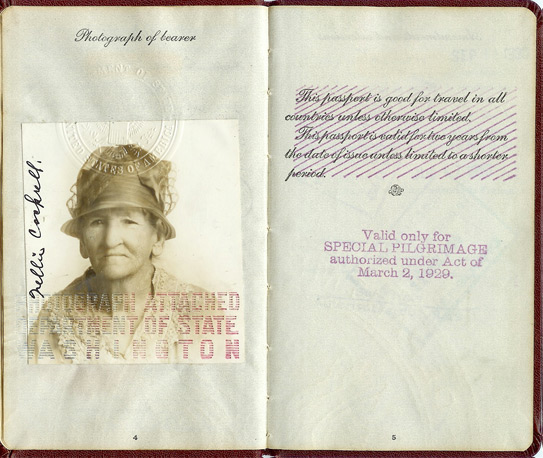 Photograph of bearer
Nellie Cockrell.
PHOTOGRAPH ATTACHED
DEPARTMENT OF STATE
WASHINGTON
4
This passport is good for travel in all
countries unless otherwise limited.
This passport is valid for two years from
the date of issue unless limited to a shorter
period.
Valid only for
SPECIAL PILGRIMAGE
authorized under Act of
March 2, 1929.
5